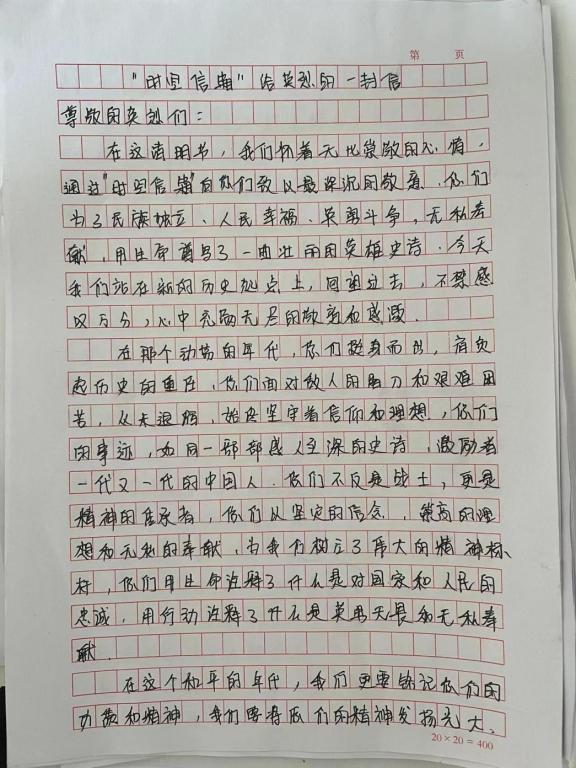 第 页
"时空信箱"给英烈的一封信
尊敬的英烈们：
在这清明节，我们怀着无比崇敬的心情，
通过"时空信箱"向你们致以最深沉的敬意．你们
为了民族独立、人民幸福、英勇斗争，无私奉
献，用生命谱写了一曲壮丽的英雄史诗．今天
我们站在新的历史起点上，回望过去，不禁感
叹万分，心中充满无尽的敬意和感激．
在那个动荡的年代，你们挺身而出，肩负
起历史的重任，你们面对敌人的屠刀和艰难困
苦，从未退缩，始终坚守着信仰和理想，你们
的事迹，如同一部部感人至深的史诗，激励着
一代又一代的中国人．你们不仅是战士，更是
精神的传承者，你们以坚定的信念，崇高的理
想和无私的奉献，为我们树立了伟大的精神标
杆，你们用生命诠释了什么是对国家和人民的
忠诚，用行动诠释了什么是英勇无畏和无私奉
献．
在这个和平的年代，我们更要铭记你们的
功勋和精神，我们要将你们的精神发扬光大、
20×20=400